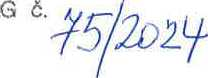 G č. 75/2024